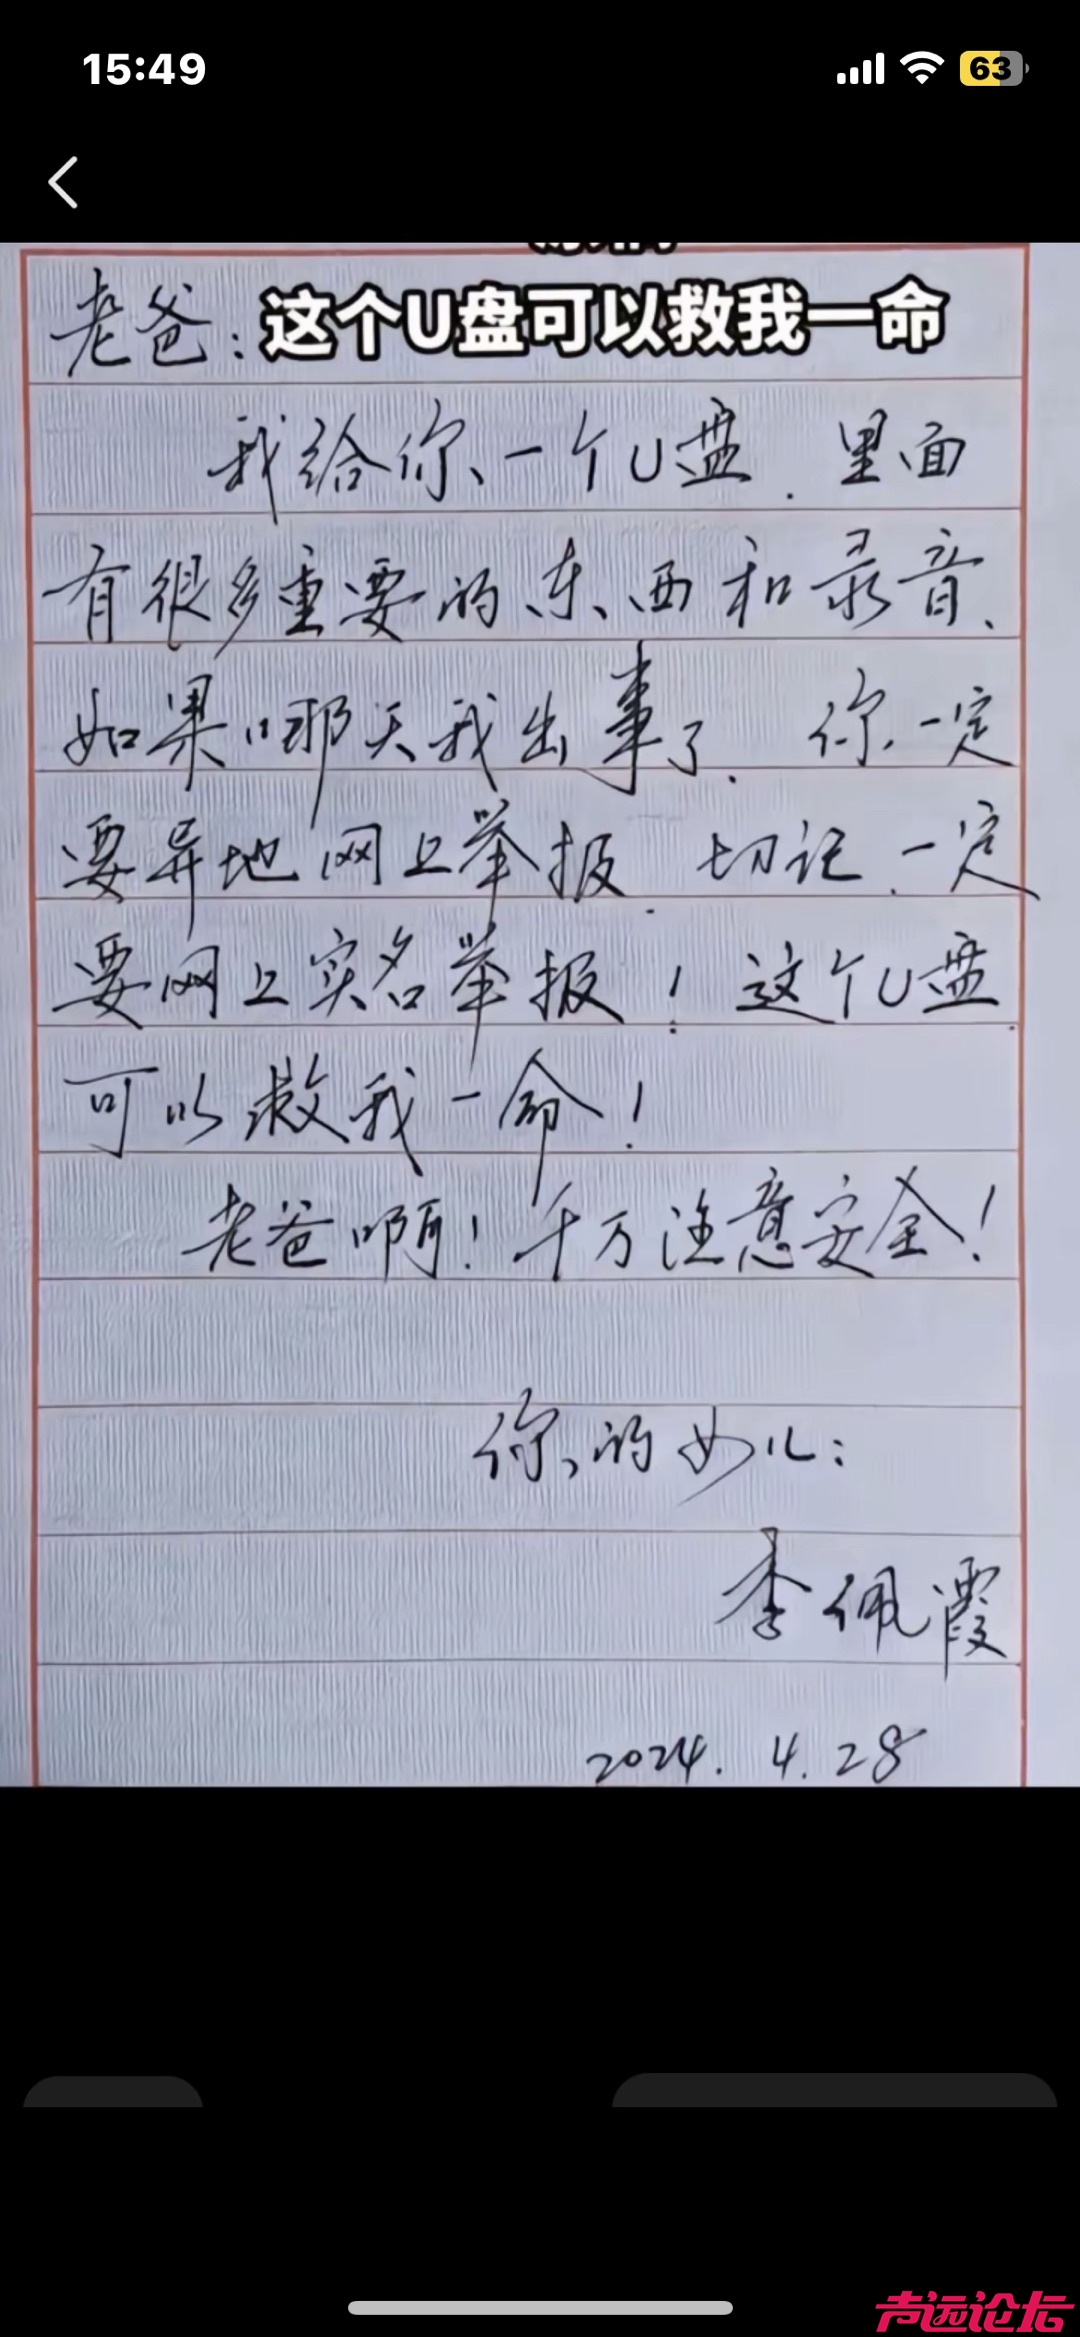 15:49
63
这个U盘可以救我一命
老爸：
我给你一个U盘.里面
有很多重要的东西和录音、
如果哪天我出事了.你一定
要异地网上举报.切记.一定
要网上实名举报！这个U盘
可以救我一命！
老爸啊！千万注意安全！
你的女儿：
李佩霞
2024.4.28
声远论坛